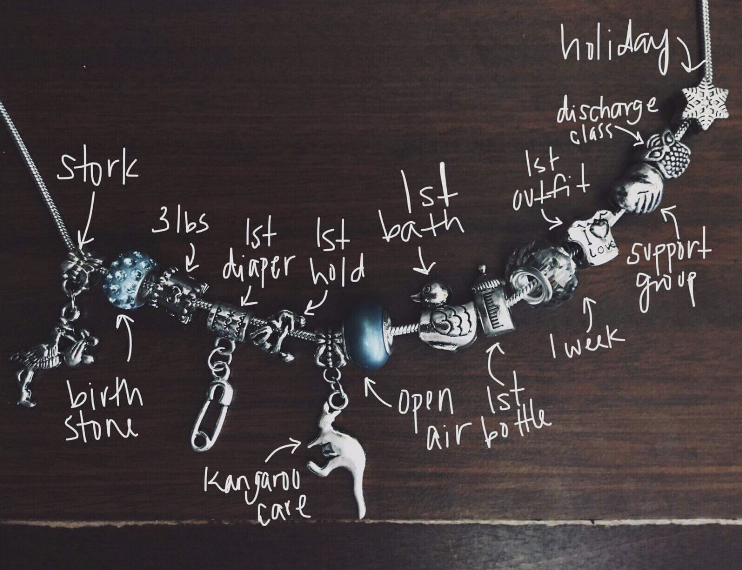 stork
birth
stone
3 lbs
1st
diaper
1st
hold
kangaroo
care
open
air
1st
bath
1st
bottle
1 week
1st
outfit
I
LOVE
support
group
discharge
class
holiday